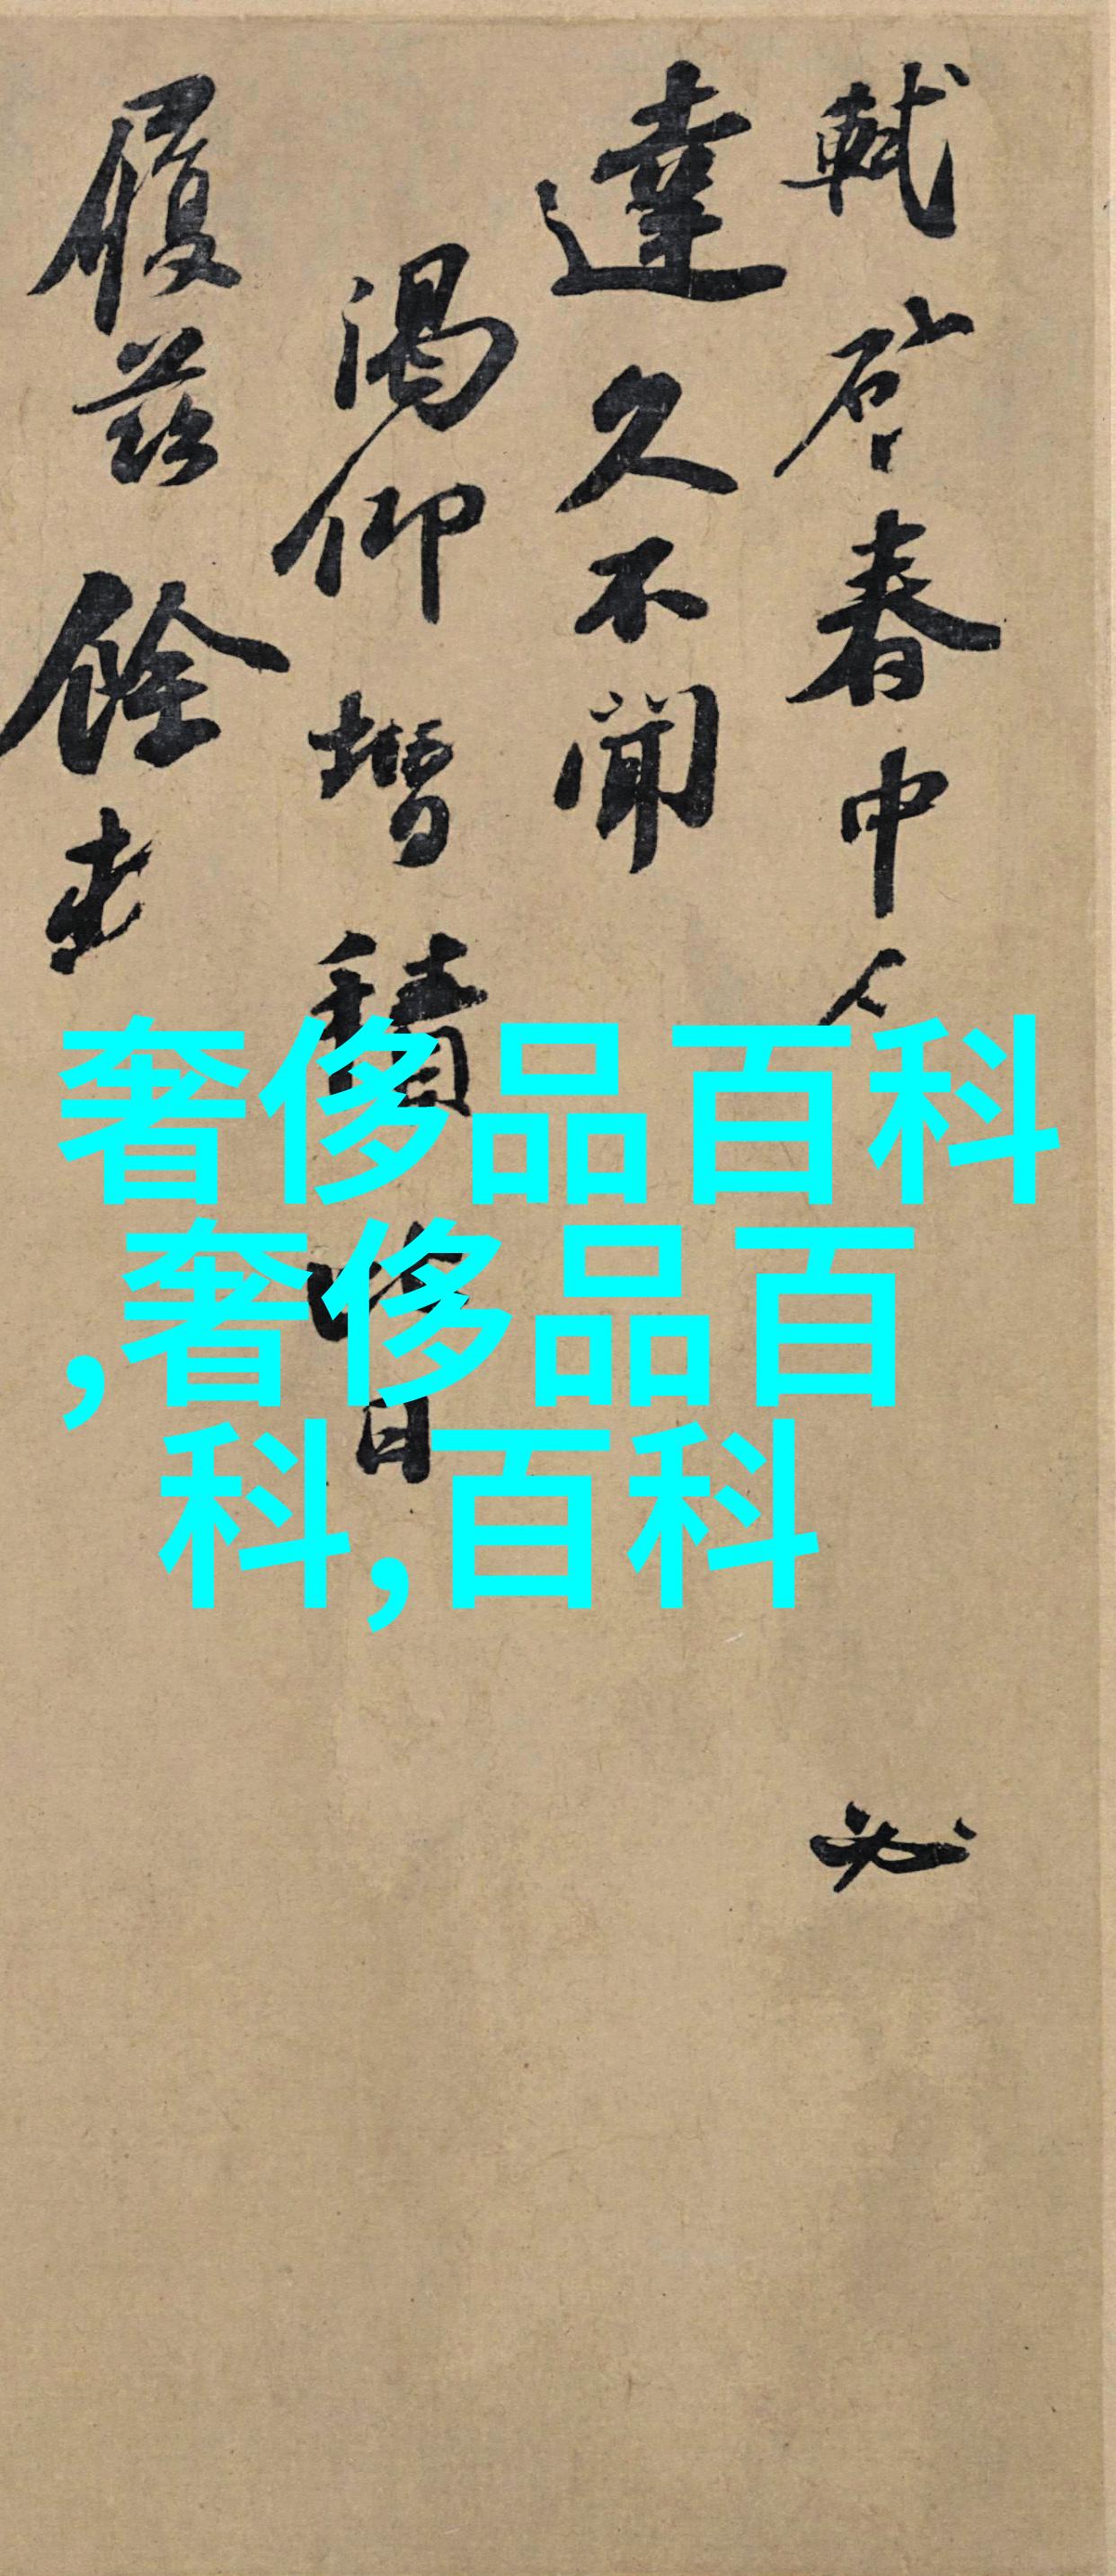 軾啓春中人必
達久不聞
渴仰增積比日
履茲餘
奢侈品百科
,奢侈品百
科,百科